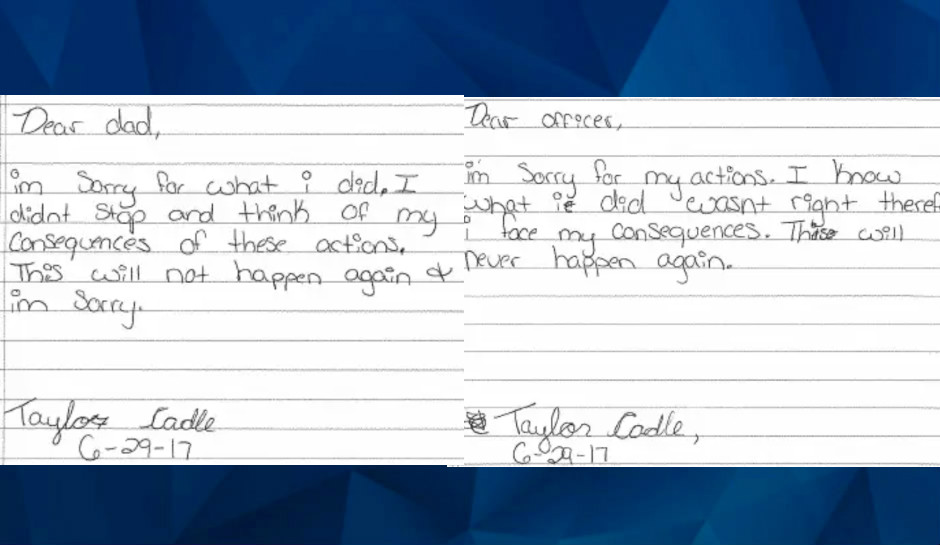 Dear dad,
im Sorry for what i did. I
didnt stop and think of my
Consequences of these actions.
This will not happen again &
im Sorry.
Taylor Cadle
6-29-17
Dear officer,
im Sorry for my actions. I know
what i did wasnt right theref
i face my consequences. This will
never happen again.
Taylor Cadle,
6-29-17